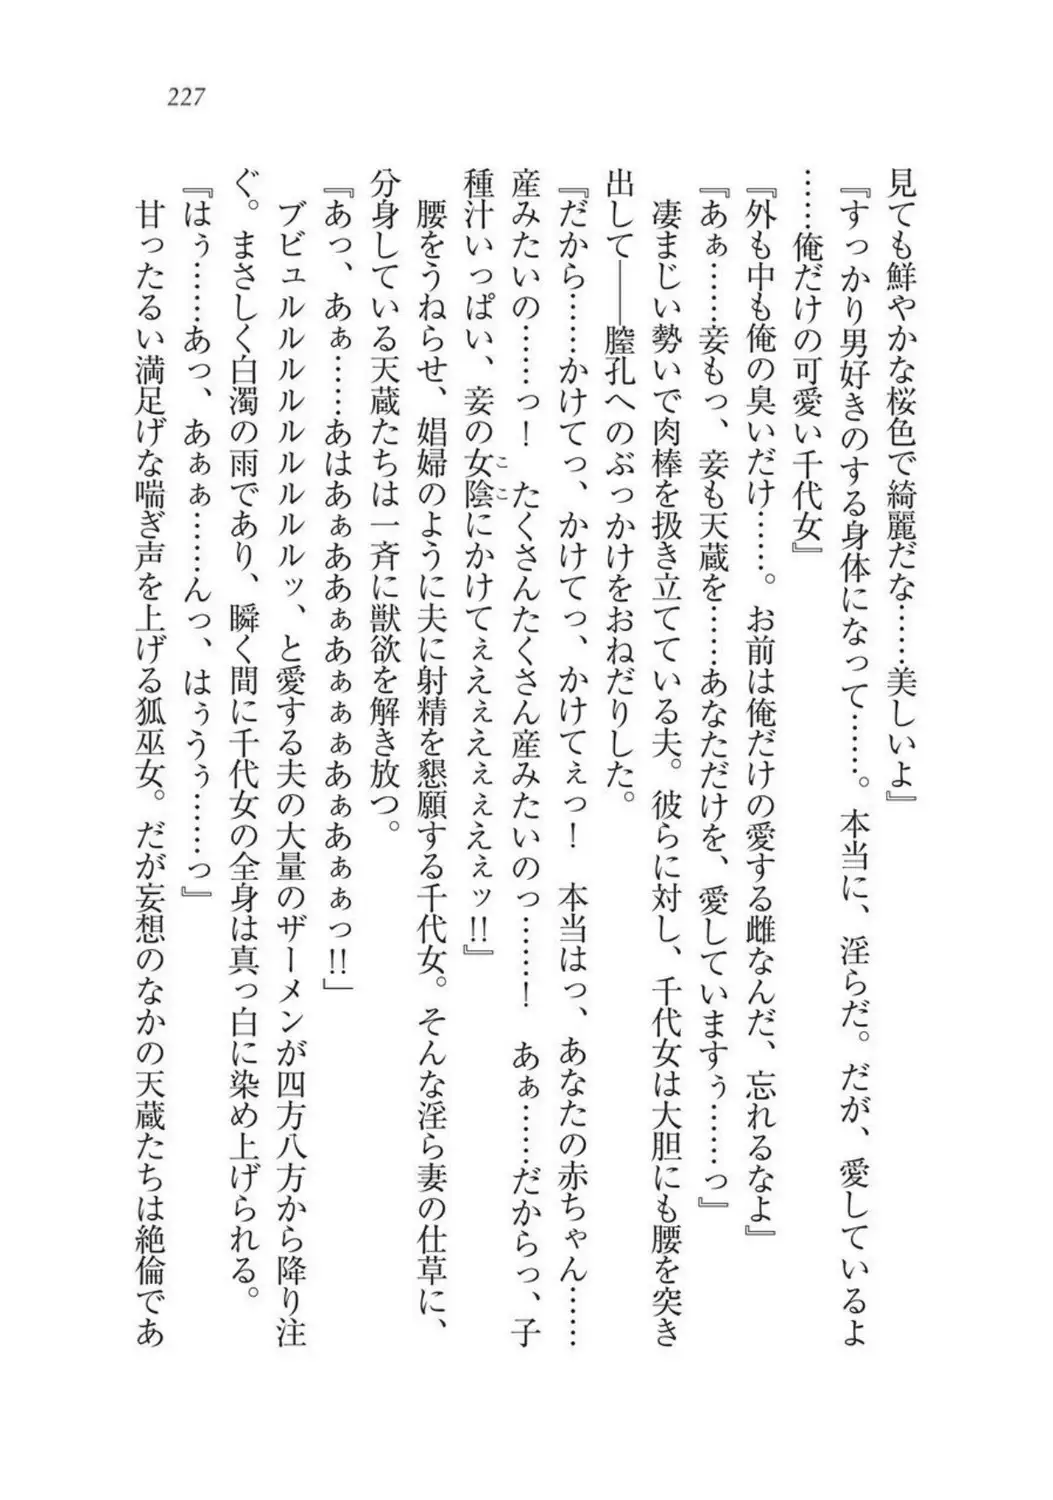 227
見ても鮮やかな桜色で綺麗だな……美しいよ』
『すっかり男好きのする身体になって……。本当に、淫らだ。だが、愛しているよ
……俺だけの可愛い千代女』
『外も中も俺の臭いだけ……。お前は俺だけの愛する雌なんだ、忘れるなよ』
『あぁ……妾もっ、妾も天蔵を……あなただけを、愛していますぅ……っ』
凄まじい勢いで肉棒を扱き立てている夫。彼らに対し、千代女は大胆にも腰を突き
出して――膣孔へのぶっかけをおねだりした。
『だから……かけてっ、かけてっ、かけてぇっ！　本当はっ、あなたの赤ちゃん……
産みたいの……っ！　たくさんたくさん産みたいのっ……！　あぁ……だからっ、子
種汁いっぱい、妾の女陰ここにかけてぇえぇえぇぇえぇッ!!』
腰をうねらせ、娼婦のように夫に射精を懇願する千代女。そんな淫ら妻の仕草に、
分身している天蔵たちは一斉に獣欲を解き放つ。
『あっ、あぁ……あはあぁああぁあぁぁぁあぁあぁぁっ!!」
ブビュルルルルルルルルルッ、と愛する夫の大量のザーメンが四方八方から降り注
ぐ。まさしく白濁の雨であり、瞬く間に千代女の全身は真っ白に染め上げられる。
『はぅ……あっ、あぁぁ……んっ、はぅうぅ……っ』
甘ったるい満足げな喘ぎ声を上げる狐巫女。だが妄想のなかの天蔵たちは絶倫であ